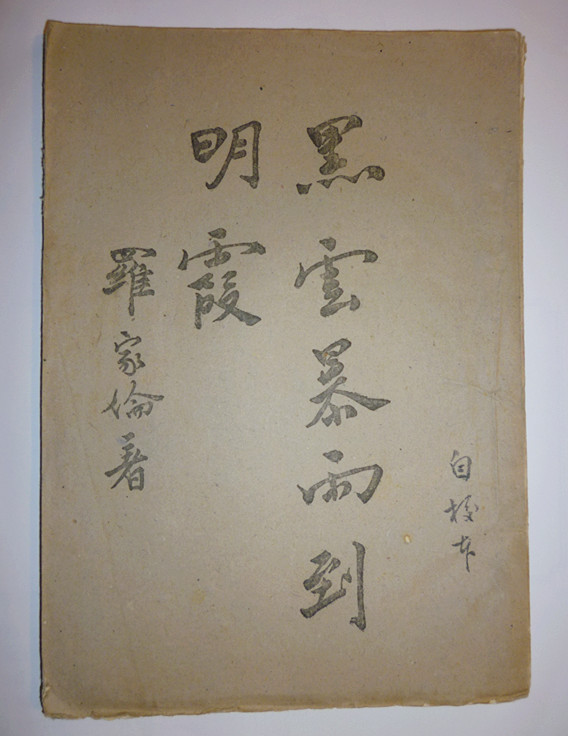 自校本
黑雲暴雨到
明霞
羅家倫著